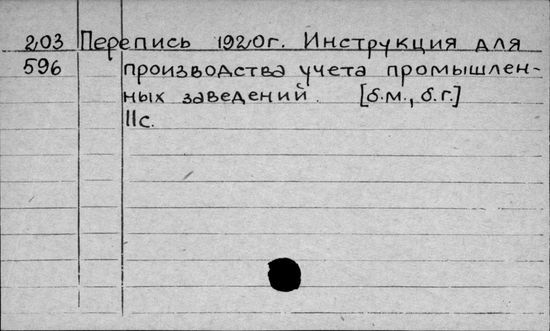 203 Перепись 1920г. Инструкция для
596 производства учета промышлен-
ных заведений. [б.м., б.г.]
11с.